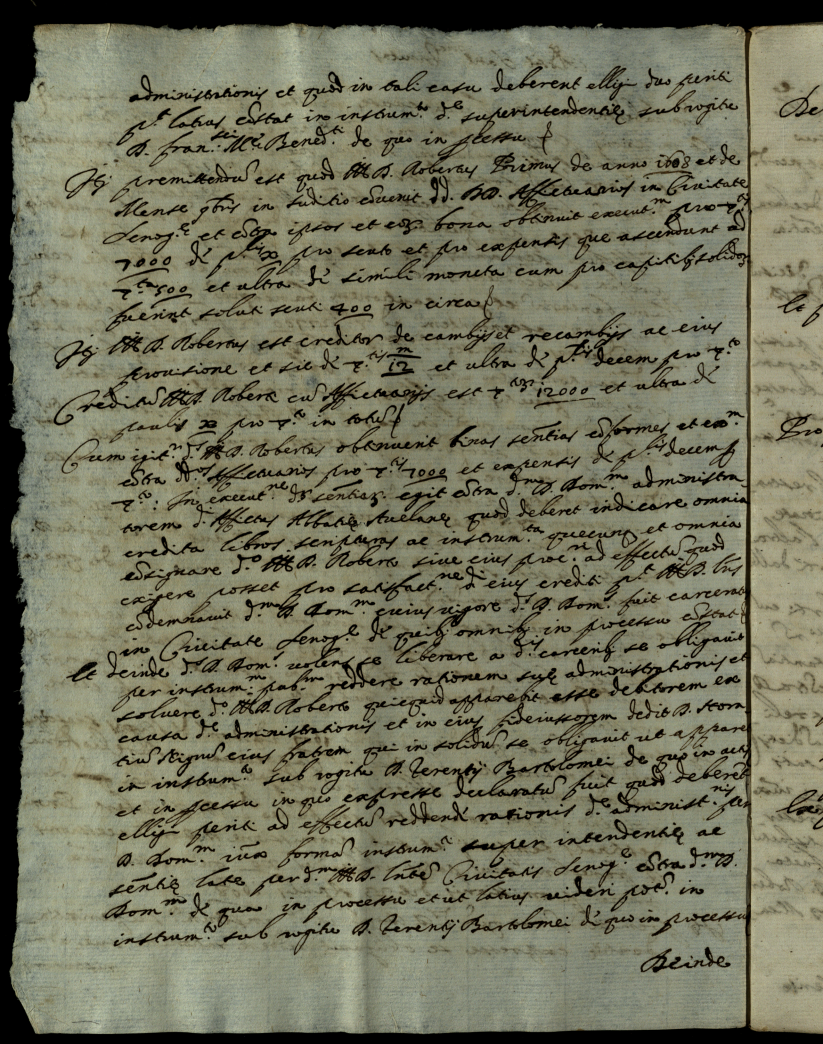 administrationis et quod in tali casu deberent elligi duo periti
p.t latius cõstat in instrum.to d.e superintendentię sub rogitu
D. Fran.sci M.e Bened.ti de quo in pcessu
Itẽ premittendũ est quod Ill D. Robertus Primus de anno 1608 et de
Mense 9bris in iuditio cõuenit dd. DD. Affictuarios in Ciuitate
Senog.e et cõtra ipsos et eoȝ bona obtinuit execut.m pro
7000 de p.lis x pro scuto et pro expensis que ascendunt ad
500 et ultra de simili moneta cum pro capitibȝ solidoȝ
fuerint soluti scuti 400 in circa
Itẽ Ill D. Robertus est creditor de cambijs et recambijs ac eius
prouisione et sic de m/12 et ultra de p.lis decem pro
Creditũ Ill D. Roberti cũ Affictuarijs est 12000 et ultra de
paulis x pro in totũ
Cum igit.r d.s Ill D. Robertus obtinuerit binas sentias cõformes et
cõtra dd.os Affictuarios pro 7000 et expensis de p.lis decem p
In execut.ne dd. sentiaȝ egit cõtra d.m D. Dom.m administra-
torem d.i Affictus Abbatię Auelanę quod deberet indicare omnia
credita libros scripturas ac instrum.ta quecunq et omnia
cõsignare d.o Ill D. Roberto siue eius proc.ri ad effectũ quod
exigere posset pro satisfact.ne d.i eius crediti p.t Ill D.
cõdemnauit d.m D. Dom.m cuius uigore d.s D. Dom.s fuit carcerat
in Ciuitate Senog.e de quibȝ omnibȝ in processu cõstat
et deinde d.s D. Dom.s uolens se liberare a d.is carceribȝ se obligauit
per instrum.m pub.m reddere rationem suę administrationis et
soluere d.o Ill D. Roberto quicquid apparebit esse debitorem ex
causa d.e administrationis et in eius fideiussorem dedit D.
eius fratrem qui in solidũ se obligauit ut appare
in instrum.to sub rogitu D. Terentij Bartolomei de quo in actis
et in pcessu in quo expresse declaratũ fuit quod deberet
elligi periti ad effectũ reddendę rationis d.e administ.nis per
D. Dom.m iuxa formã instrum.ti super intendentię ac
sentię late per d.m Ill D. Ciuitatis Senog.e cõtra d.m D.
Dom.m de qua in processu et ut latius uideri pot. in
instrum.to sub rogitu D. Terentij Bartolomei de quo in processu
Deinde